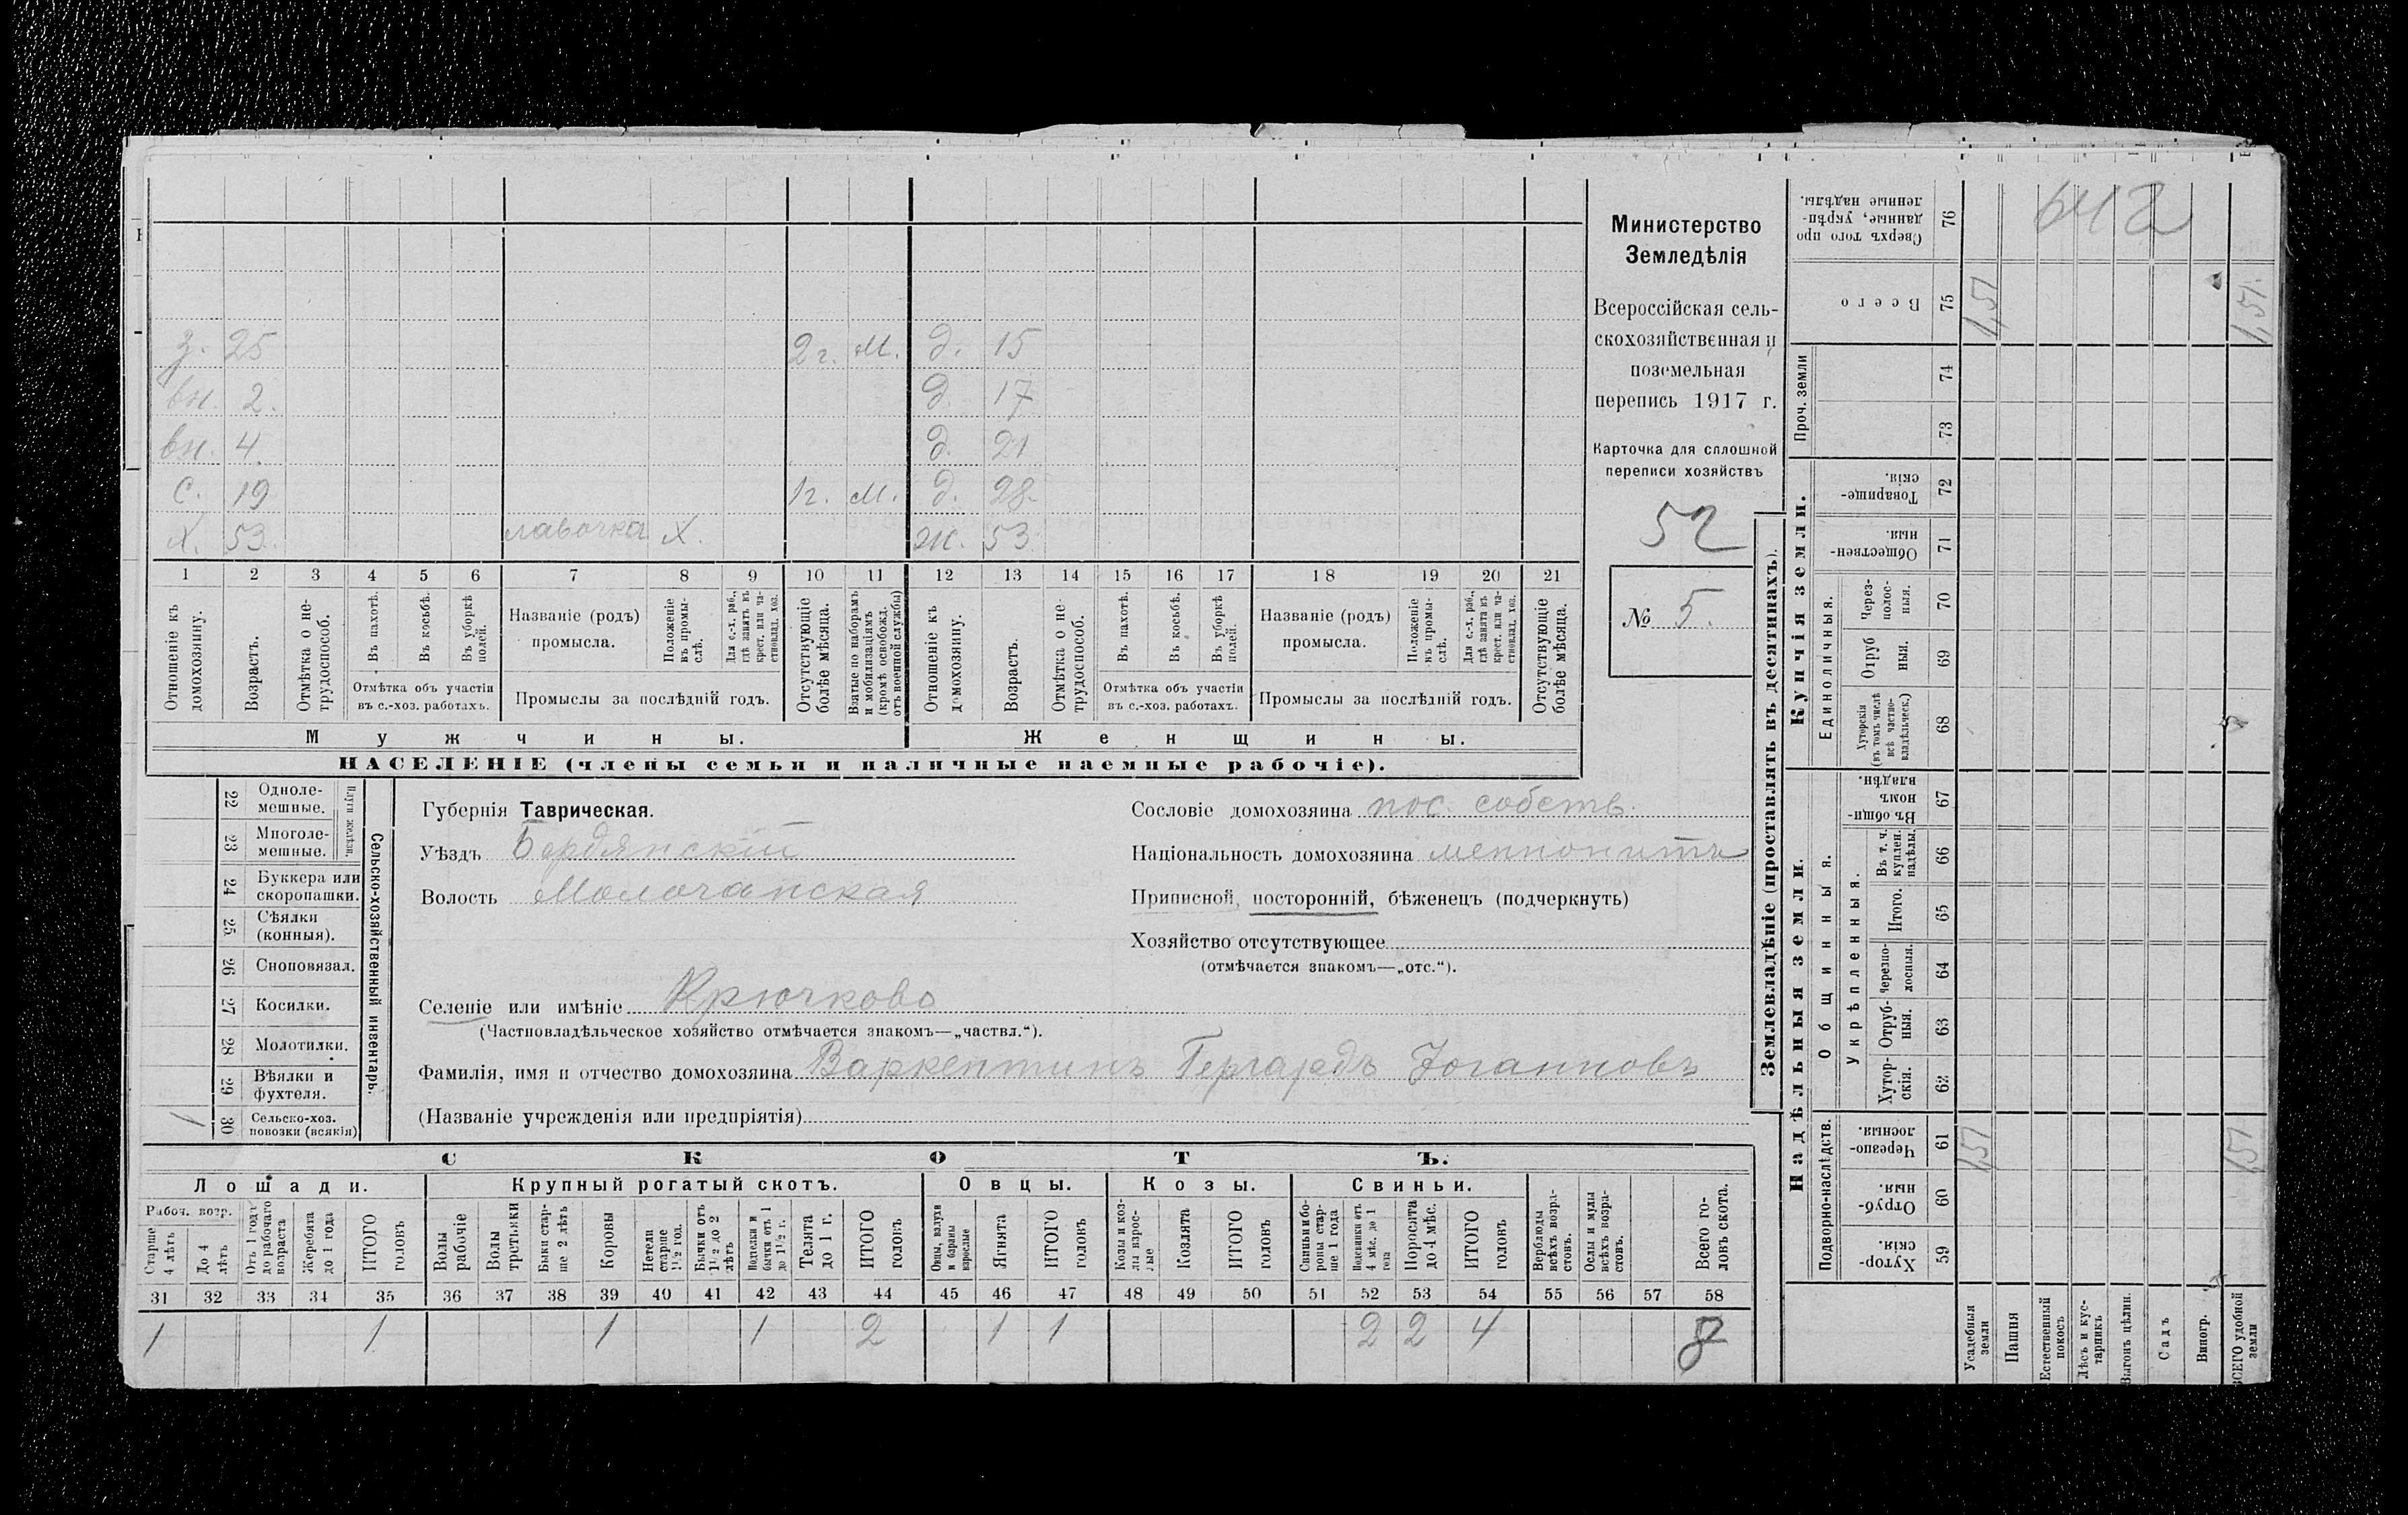 з. 25 2 г. м. д. 15
вн. 2. д. 17
вн. 4. д. 21
с. 19 1 г. м. д. 28.
х. 53. лавочка х. ж. 53.
1 2 3 4 5 6 7 8 9 10 11 12 13 14 15 16 17 18 19 20 21
Отношеніе къ домохозяину.
Возрастъ.
Отмѣтка о не-трудоспособ.
Въ пахотѣ.
Въ косьбѣ.
Въ уборкѣ полей.
Отмѣтка объ участіи
въ с.-хоз. работахъ.
Названіе (родъ)
промысла.
Положеніе въ промы-слѣ.
Для с.-х. раб., гдѣ занятъ въ крест. или ча-стновлад. хоз.
Промыслы за послѣдній годъ.
Отсутствующіе болѣе мѣсяца.
Взятые по наборамъ и мобилизаціямъ (кромѣ освобожд. отъ военной службы)
Отношеніе къ домохозяину.
Возрастъ.
Отмѣтка о не-трудоспособ.
Въ пахотѣ.
Въ косьбѣ.
Въ уборкѣ полей.
Отмѣтка объ участіи
въ с.-хоз. работахъ.
Названіе (родъ)
промысла.
Положеніе въ промы-слѣ.
Для с.-х. раб., гдѣ занята въ крест. или ча-стновлад. хоз.
Промыслы за послѣдній годъ.
Отсутствующіе болѣе мѣсяца.
Мужчины. Женщины.
НАСЕЛЕНІЕ (члены семьи и наличные наемные рабочіе).
Министерство
Земледѣлія
Всероссійская сель-
скохозяйственная и
поземельная
перепись 1917 г.
Карточка для сплошной
переписи хозяйствъ
52
№ 5.
22 Одноле-мешные.
23 Многоле-мешные.
Плуги желѣзн.
24 Буккера или скоропашки.
25 Сѣялки (конныя).
26 Сноповязал.
27 Косилки.
28 Молотилки.
29 Вѣялки и фухтеля.
1 30 Сельско-хоз. повозки (всякія)
Сельско-хозяйственный инвентарь.
Губернія Таврическая.
Уѣздъ Бердянскій
Волость Молочанская
Сословіе домохозяина пос. собств.
Національность домохозяина меннонитъ
Приписной, посторонній, бѣженецъ (подчеркнуть)
Хозяйство отсутствующее
(отмѣчается знакомъ—„отс.“).
Селеніе или имѣніе Крючково
(Частновладѣльческое хозяйство отмѣчается знакомъ—„частвл.“).
Фамилія, имя и отчество домохозяина Варкентинъ Гергардъ Іоганновъ
(Названіе учрежденія или предпріятія)
СКОТЪ.
Лошади. Крупный рогатый скотъ. Овцы. Козы. Свиньи.
Рабоч. возр.
Старше 4 лѣтъ
До 4 лѣтъ
Отъ 1 года до рабочаго возраста
Жеребята до 1 года
ИТОГО головъ
Волы рабочіе
Волы третьяки
Быки стар-ше 2 лѣтъ
Коровы
Нетели старше 1½ год.
Бычки отъ 1½ до 2 лѣтъ
Подтелки и бычки отъ 1 до 1½ г.
Телята до 1 г.
ИТОГО головъ
Овцы, валухи и бараны взрослые
Ягнята
ИТОГО головъ
Козы и коз-лы взрос-лые
Козлята
ИТОГО головъ
Свиньи и бо-роны стар-ше 1 года
Подсвинки отъ 4 мѣс. до 1 года
Поросята до 4 мѣс.
ИТОГО головъ
Верблюды всѣхъ возра-стовъ.
Ослы и мулы всѣхъ возра-стовъ.
Всего го-ловъ скота.
31 32 33 34 35 36 37 38 39 40 41 42 43 44 45 46 47 48 49 50 51 52 53 54 55 56 57 58
1 1 1 1 2 1 1 2 2 4 8
Землевладѣніе (проставлять въ десятинахъ).
Надѣльныя земли. Купчія земли.
Проч. земли
Сверхъ того про-данные, укрѣп-ленные надѣлы. 76
642
Всего 75 1,51 1,51.
74
73
Товарище-скія. 72
Обществен-ныя. 71
Единоличныя.
Через-полос-ныя. 70
Отруб-ныя. 69
Хуторскія (въ томъ числѣ всѣ частно-владѣльческ.) 68
Въ общин-номъ владѣн. 67
Общинныя.
Укрѣпленныя.
Въ т. ч. куплен. надѣлы. 66
Итого. 65
Черезпо-лосныя. 64
Отруб-ныя. 63
Хутор-скія. 62
Подворно-наслѣдств.
Черезпо-лосныя. 61 1,51 1,51
Отруб-ныя. 60
Хутор-скія. 59
Усадебныя земли
Пашня
Естественный покосъ
Лѣсъ и кус-тарникъ
Выгонъ цѣлин.
Садъ
Виногр.
ВСЕГО удобной земли